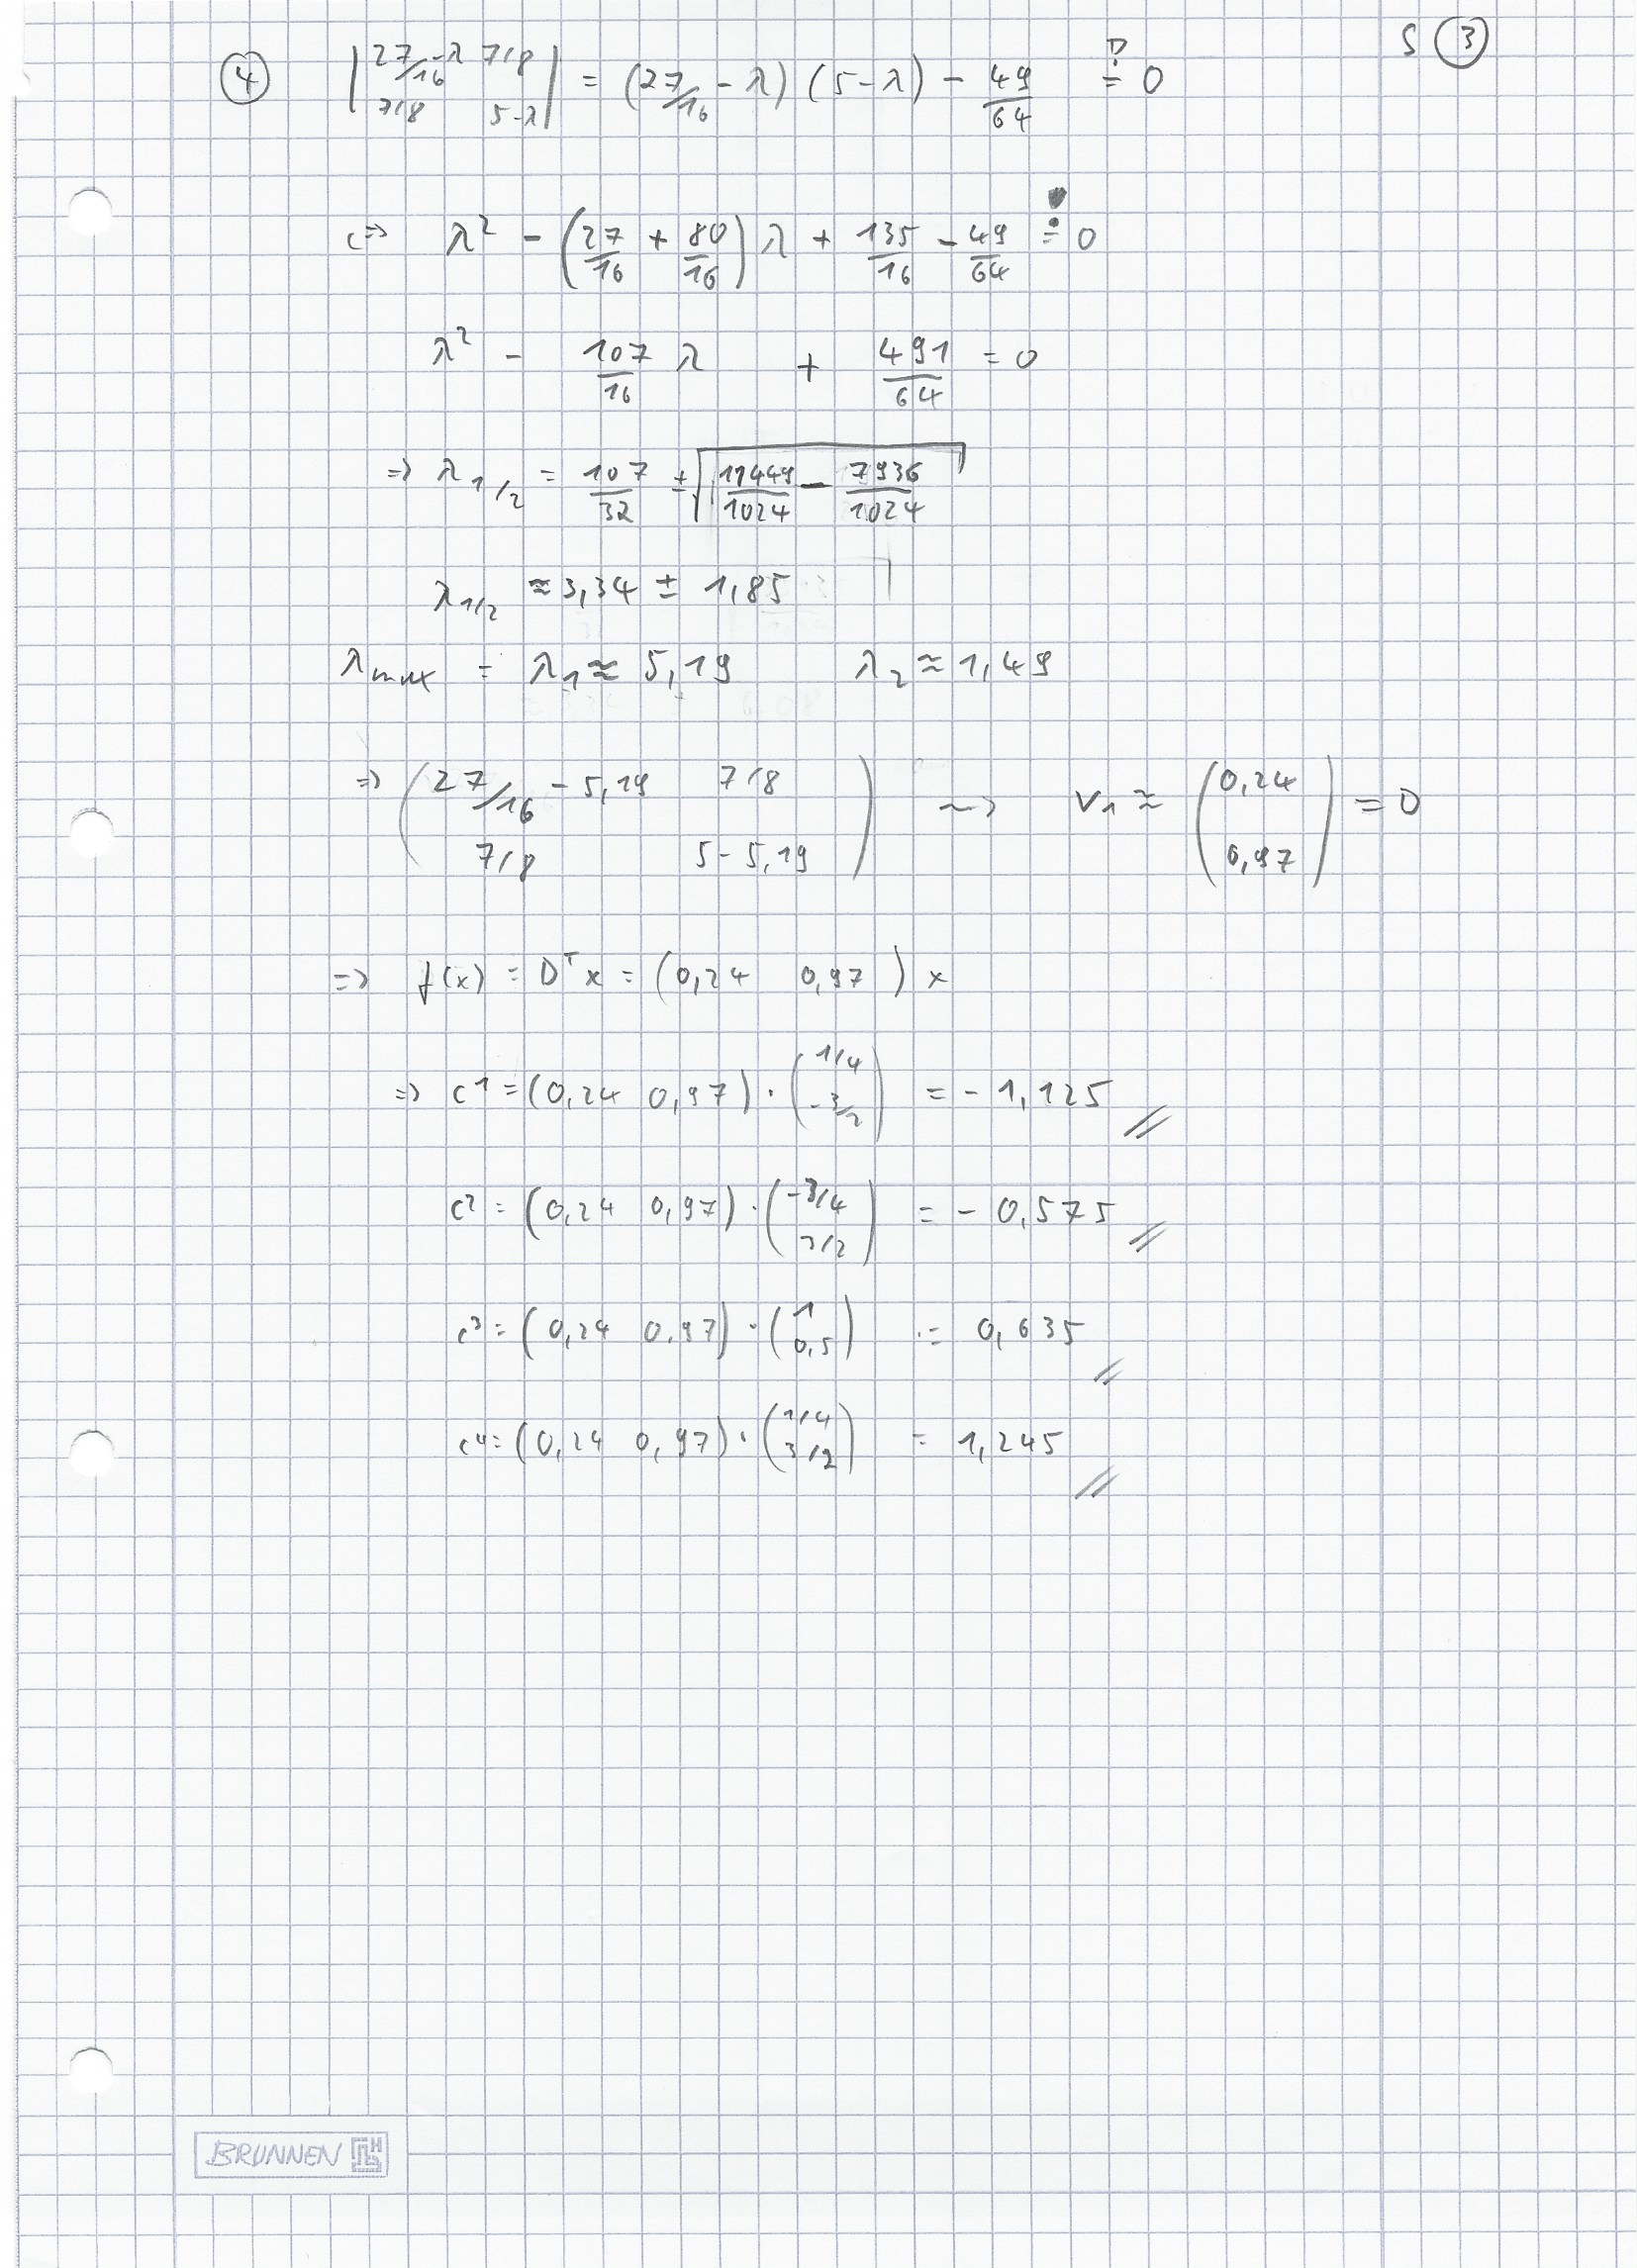 S ③
④ | 27/16 - λ 7/8 ; 7/8 5-λ | = (27/16 - λ) (5-λ) - 49/64 =! 0
<=> λ² - (27/16 + 80/16) λ + 135/16 - 49/64 =! 0
λ² - 107/16 λ + 491/64 = 0
=> λ1/2 = 107/32 ± √(11449/1024 - 7936/1024)
λ1/2 ≈ 3,34 ± 1,85
λmax = λ1 ≈ 5,19 λ2 ≈ 1,49
=> ( 27/16 - 5,19 7/8 ; 7/8 5 - 5,19 ) ~> v1 ≈ ( 0,24 ; 0,97 ) = D
=> f(x) = Dᵀx = (0,24 0,97) x
=> c¹ = (0,24 0,97) · ( 1/4 ; -3/2 ) = - 1,125
c² = (0,24 0,97) · ( -3/4 ; 7/2 ) = - 0,575
c³ = (0,24 0,97) · ( 1 ; 0,5 ) = 0,635
c⁴ = (0,24 0,97) · ( 1/4 ; 3/2 ) = 1,245
BRUNNEN